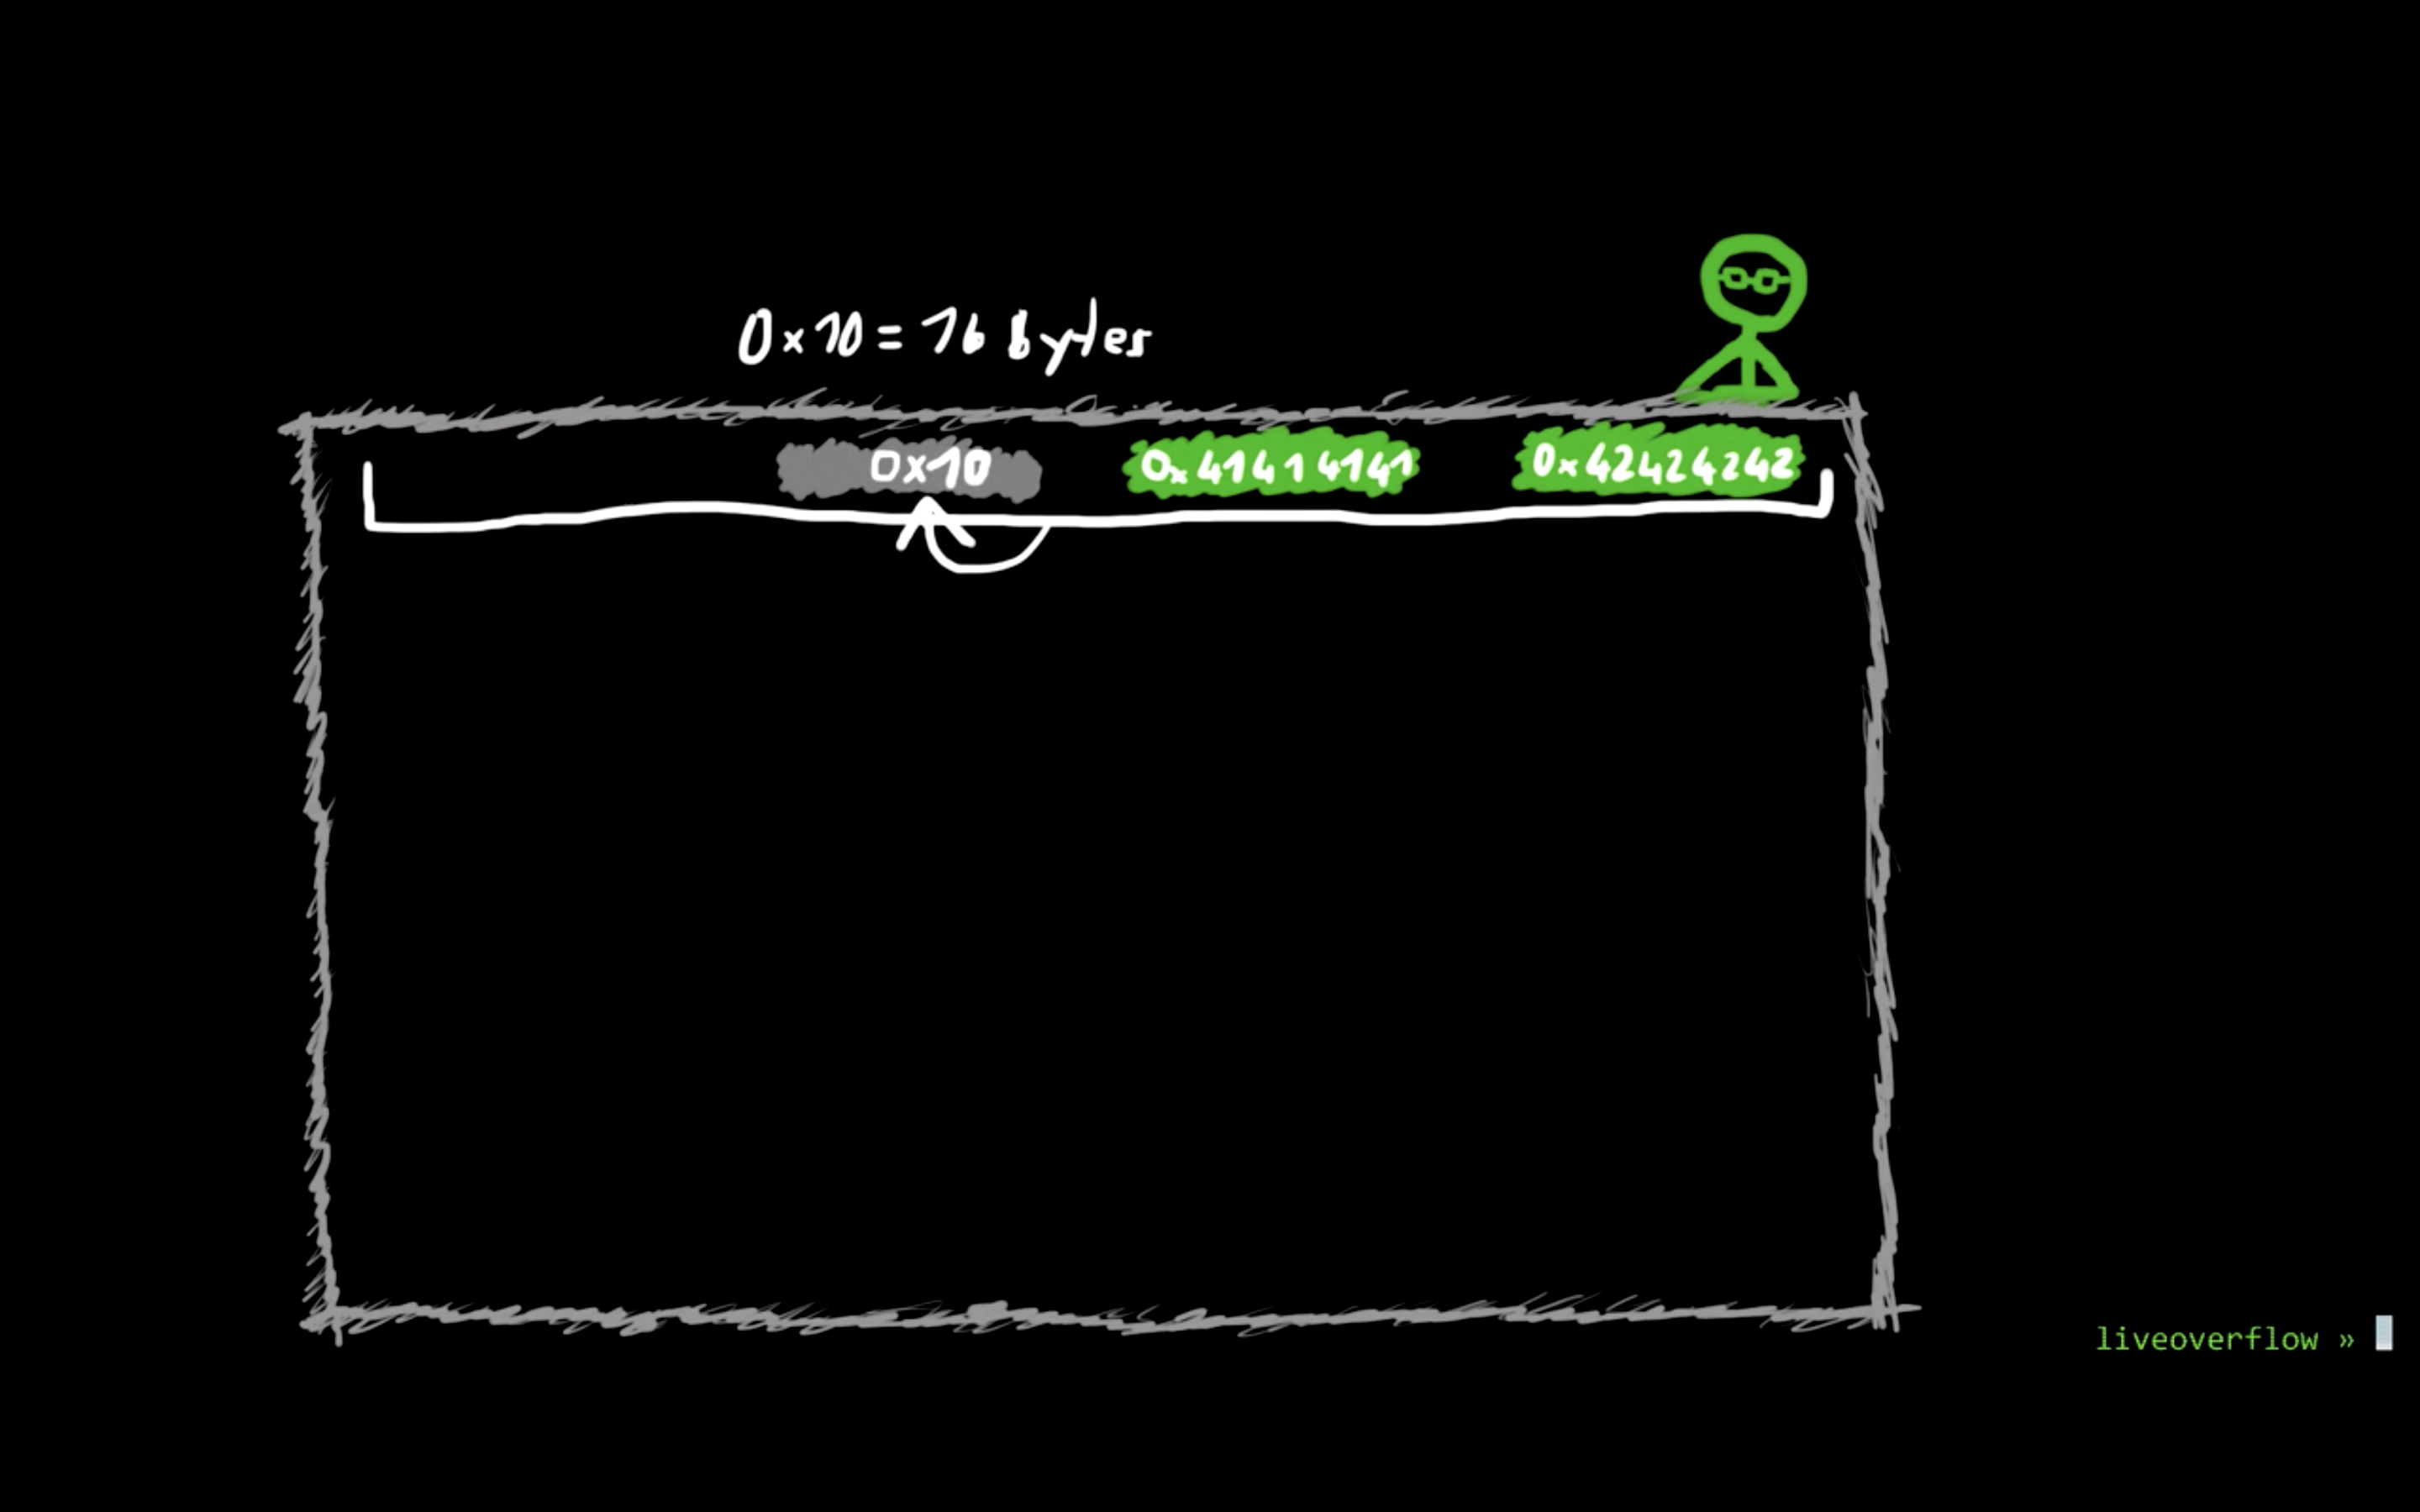 0x10 = 16 bytes
0x10 0x41414141 0x42424242
liveoverflow »